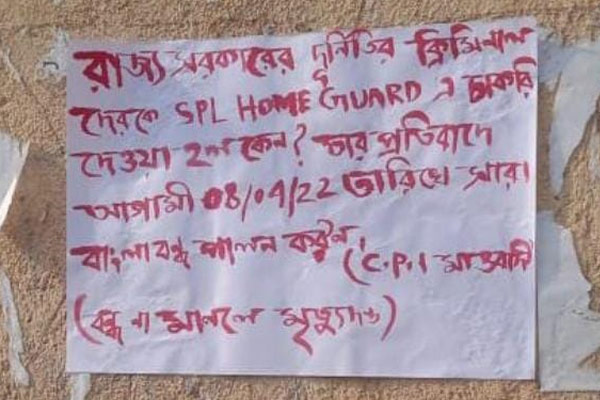 রাজ্য সরকারের দুর্নিতির ক্রিমিনাল
দেরকে SPL HOME GUARD এ চাকরি
দেওয়া হল কেন? তার প্রতিবাদে
আগামী 08/04/22 তারিখে সারা
বাংলা বন্ধ পালন করুন
(C.P.I মাওবাদী)
(বন্ধ না মানলে মৃত্যুদণ্ড)